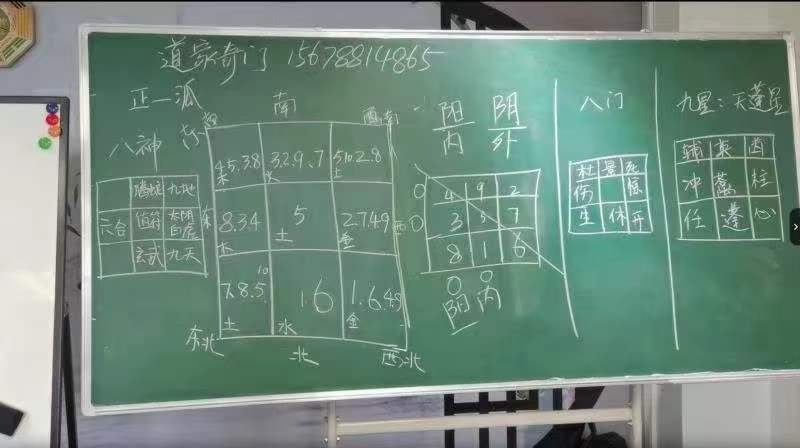 道家奇门 15678814865
正一派
八神
腾蛇 九地
六合 值符 太阴
白虎
玄武 九天
南
西南
东
西
东北
北
西北
4.5.3.8 3.2.9.7 5.10.2.8
木 火 土
8.3.4 5 2.7.4.9
木 土 金
7.8.5.10 1.6 1.6.4.9
土 水 金
阳 阴
内 外
0 4 9 2
0 3 5 7
8 1 6
0 0
阳 内
八门
杜 景 死
伤 惊
生 休 开
九星:天蓬星
辅 英 芮
冲 禽 柱
任 蓬 心